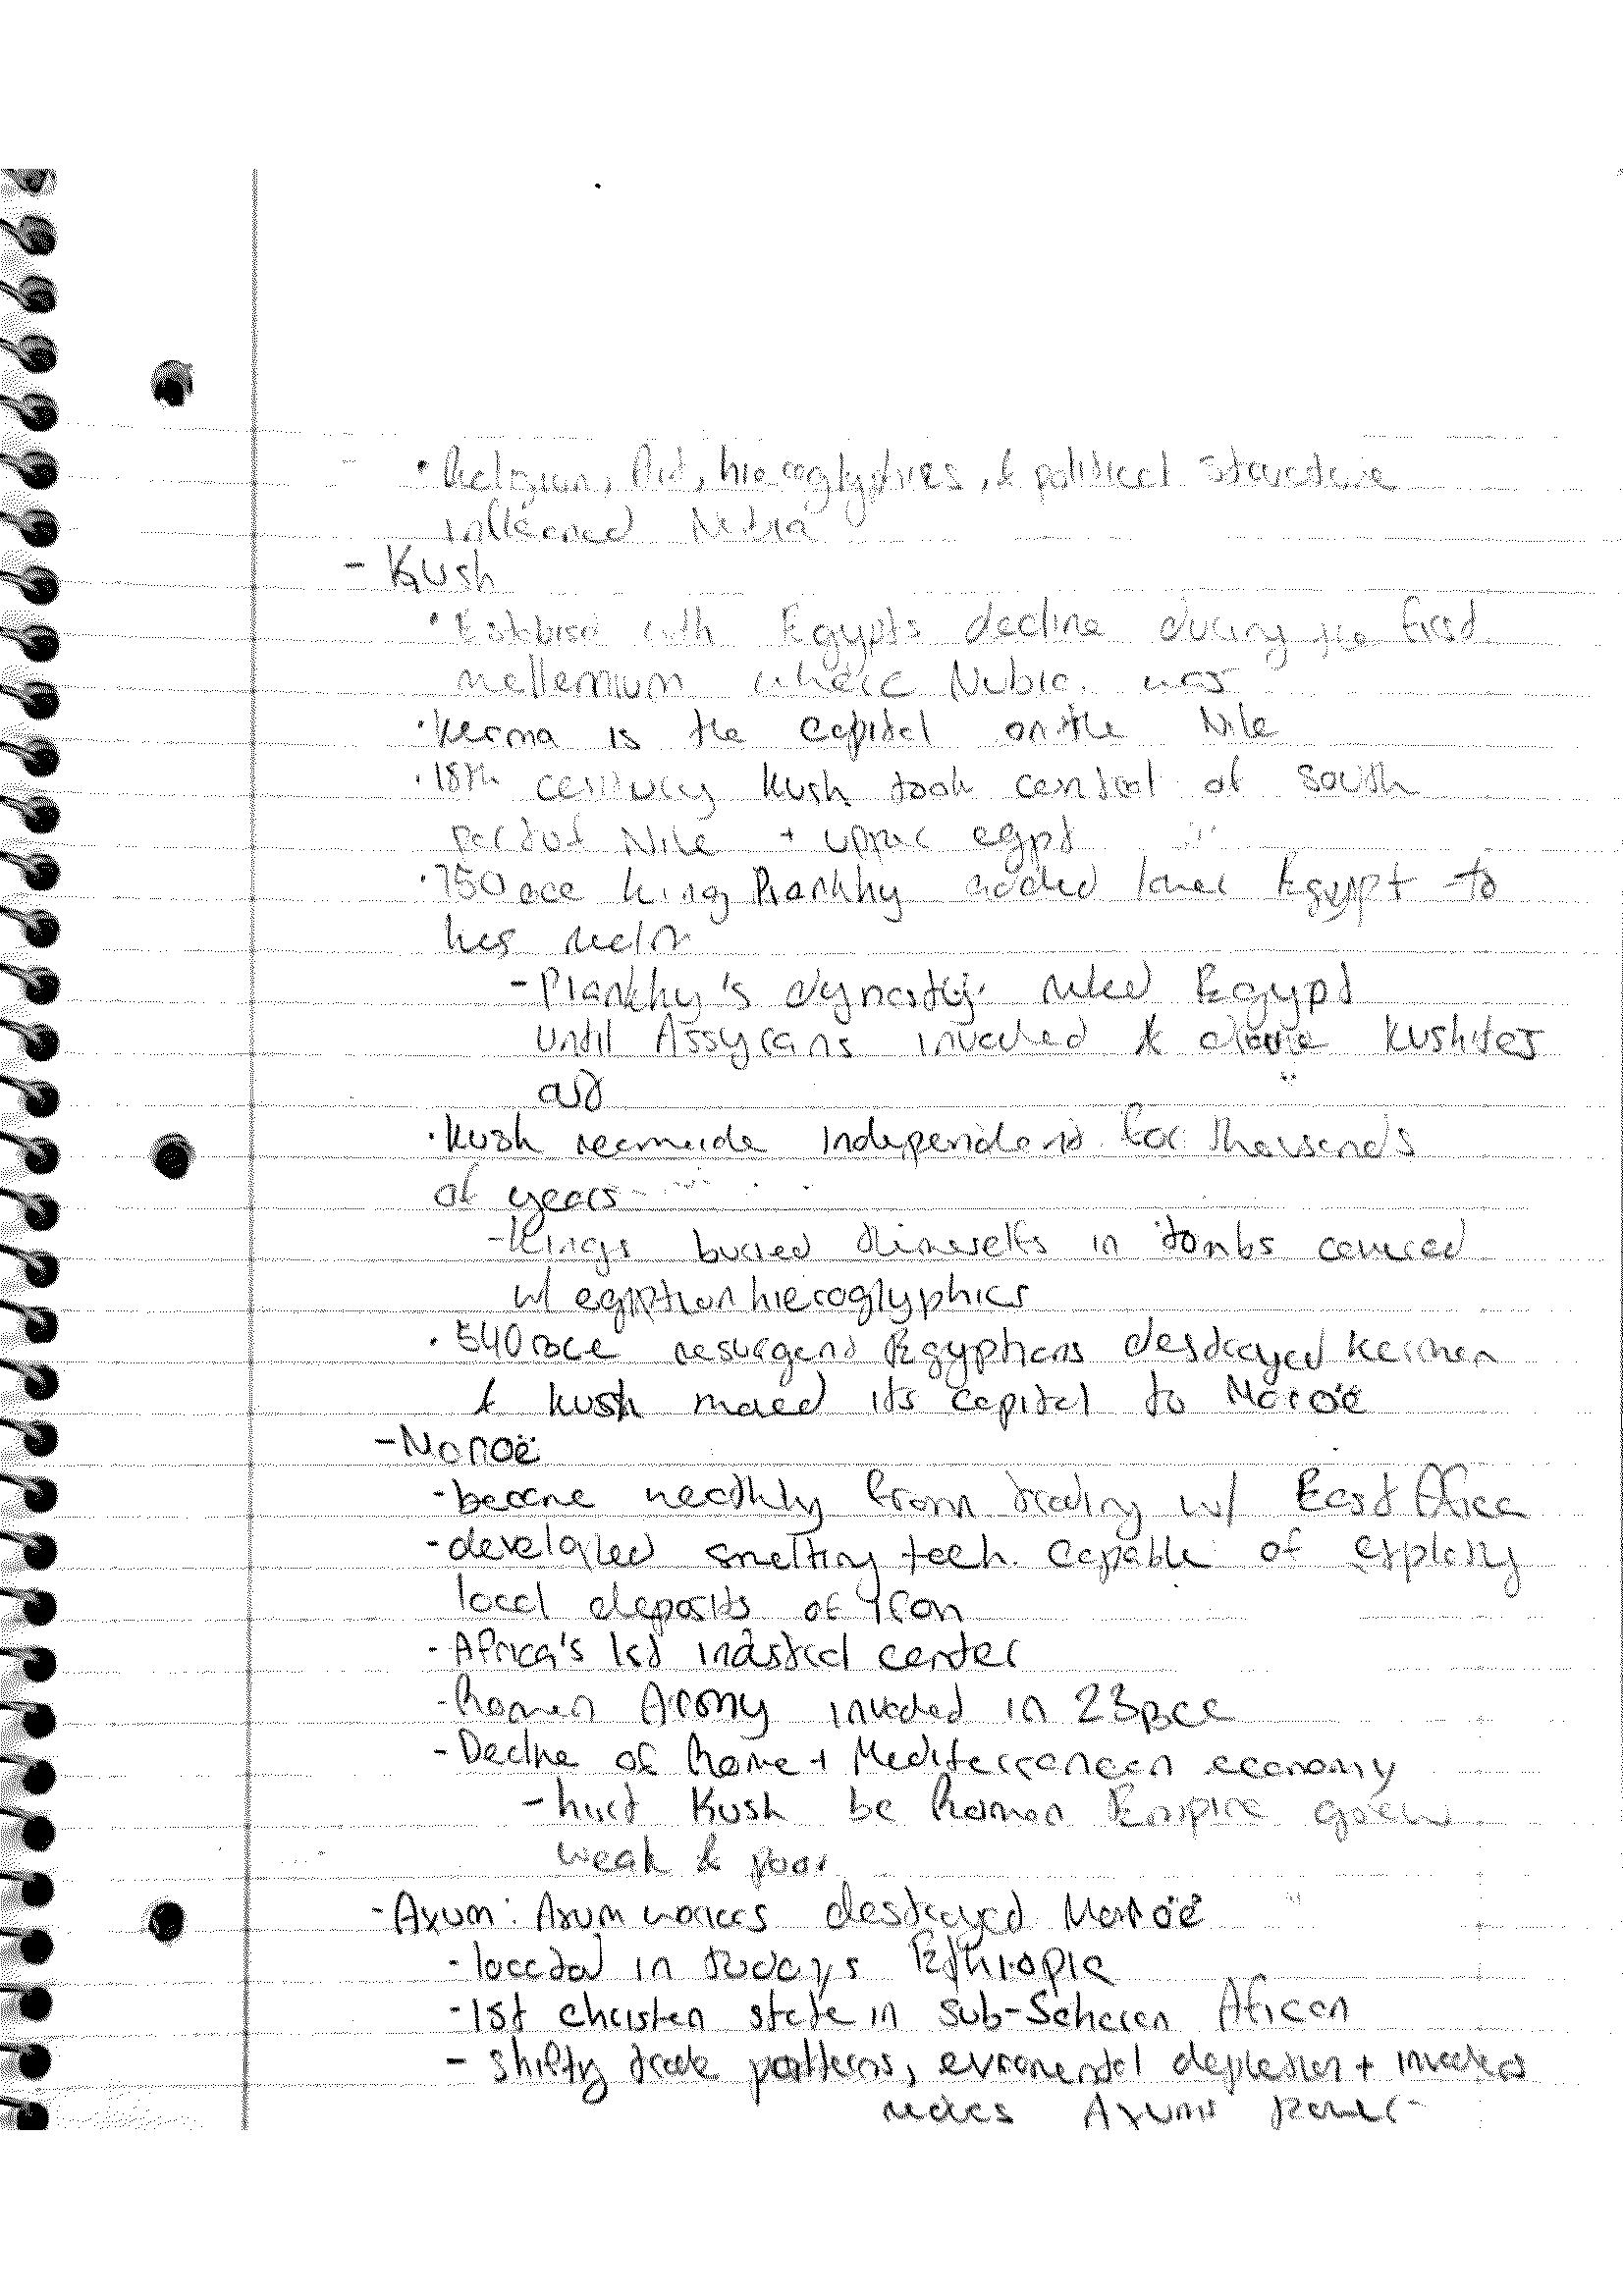 • Religion, Art, hieroglyphics, & political structure
influened Nubia
- Kush
• Establised with Egypts decline during the first
mellennium where Nubia was
• Kerma is the capital on the Nile
• 18th century Kush took control of south
part of Nile + upper egpt
• 750 BCE King Piankhy added lower Egypt to
his
- Piankhy's dynasty ruled Egypt
until Assyrians invaded & drove Kushites
out
• Kush independent for thousands
of years
- Kings buried themselfs in tombs covered
w/ egiptian hieroglyphics
• 540 BCE resurgent Egyptians destroyed Kerman
& Kush moved its capital to Maroë
- Maroë
- became wealthly from trading w/ East Africa
- developled smelting tech. capable of
local deposits of Iron
- Africa's 1st industrial center
- Roman Army invaded in 23 BCE
- Decline of Rome + Mediterranean economy
- hurt Kush bc Roman Empire grew
weak & poor
- Axum: Axum destroyed Maroë
- located in todays Ethiopia
- 1st christian state in Sub-Saharan African
- shifty trade patterns, depletion + invaders
Axums power